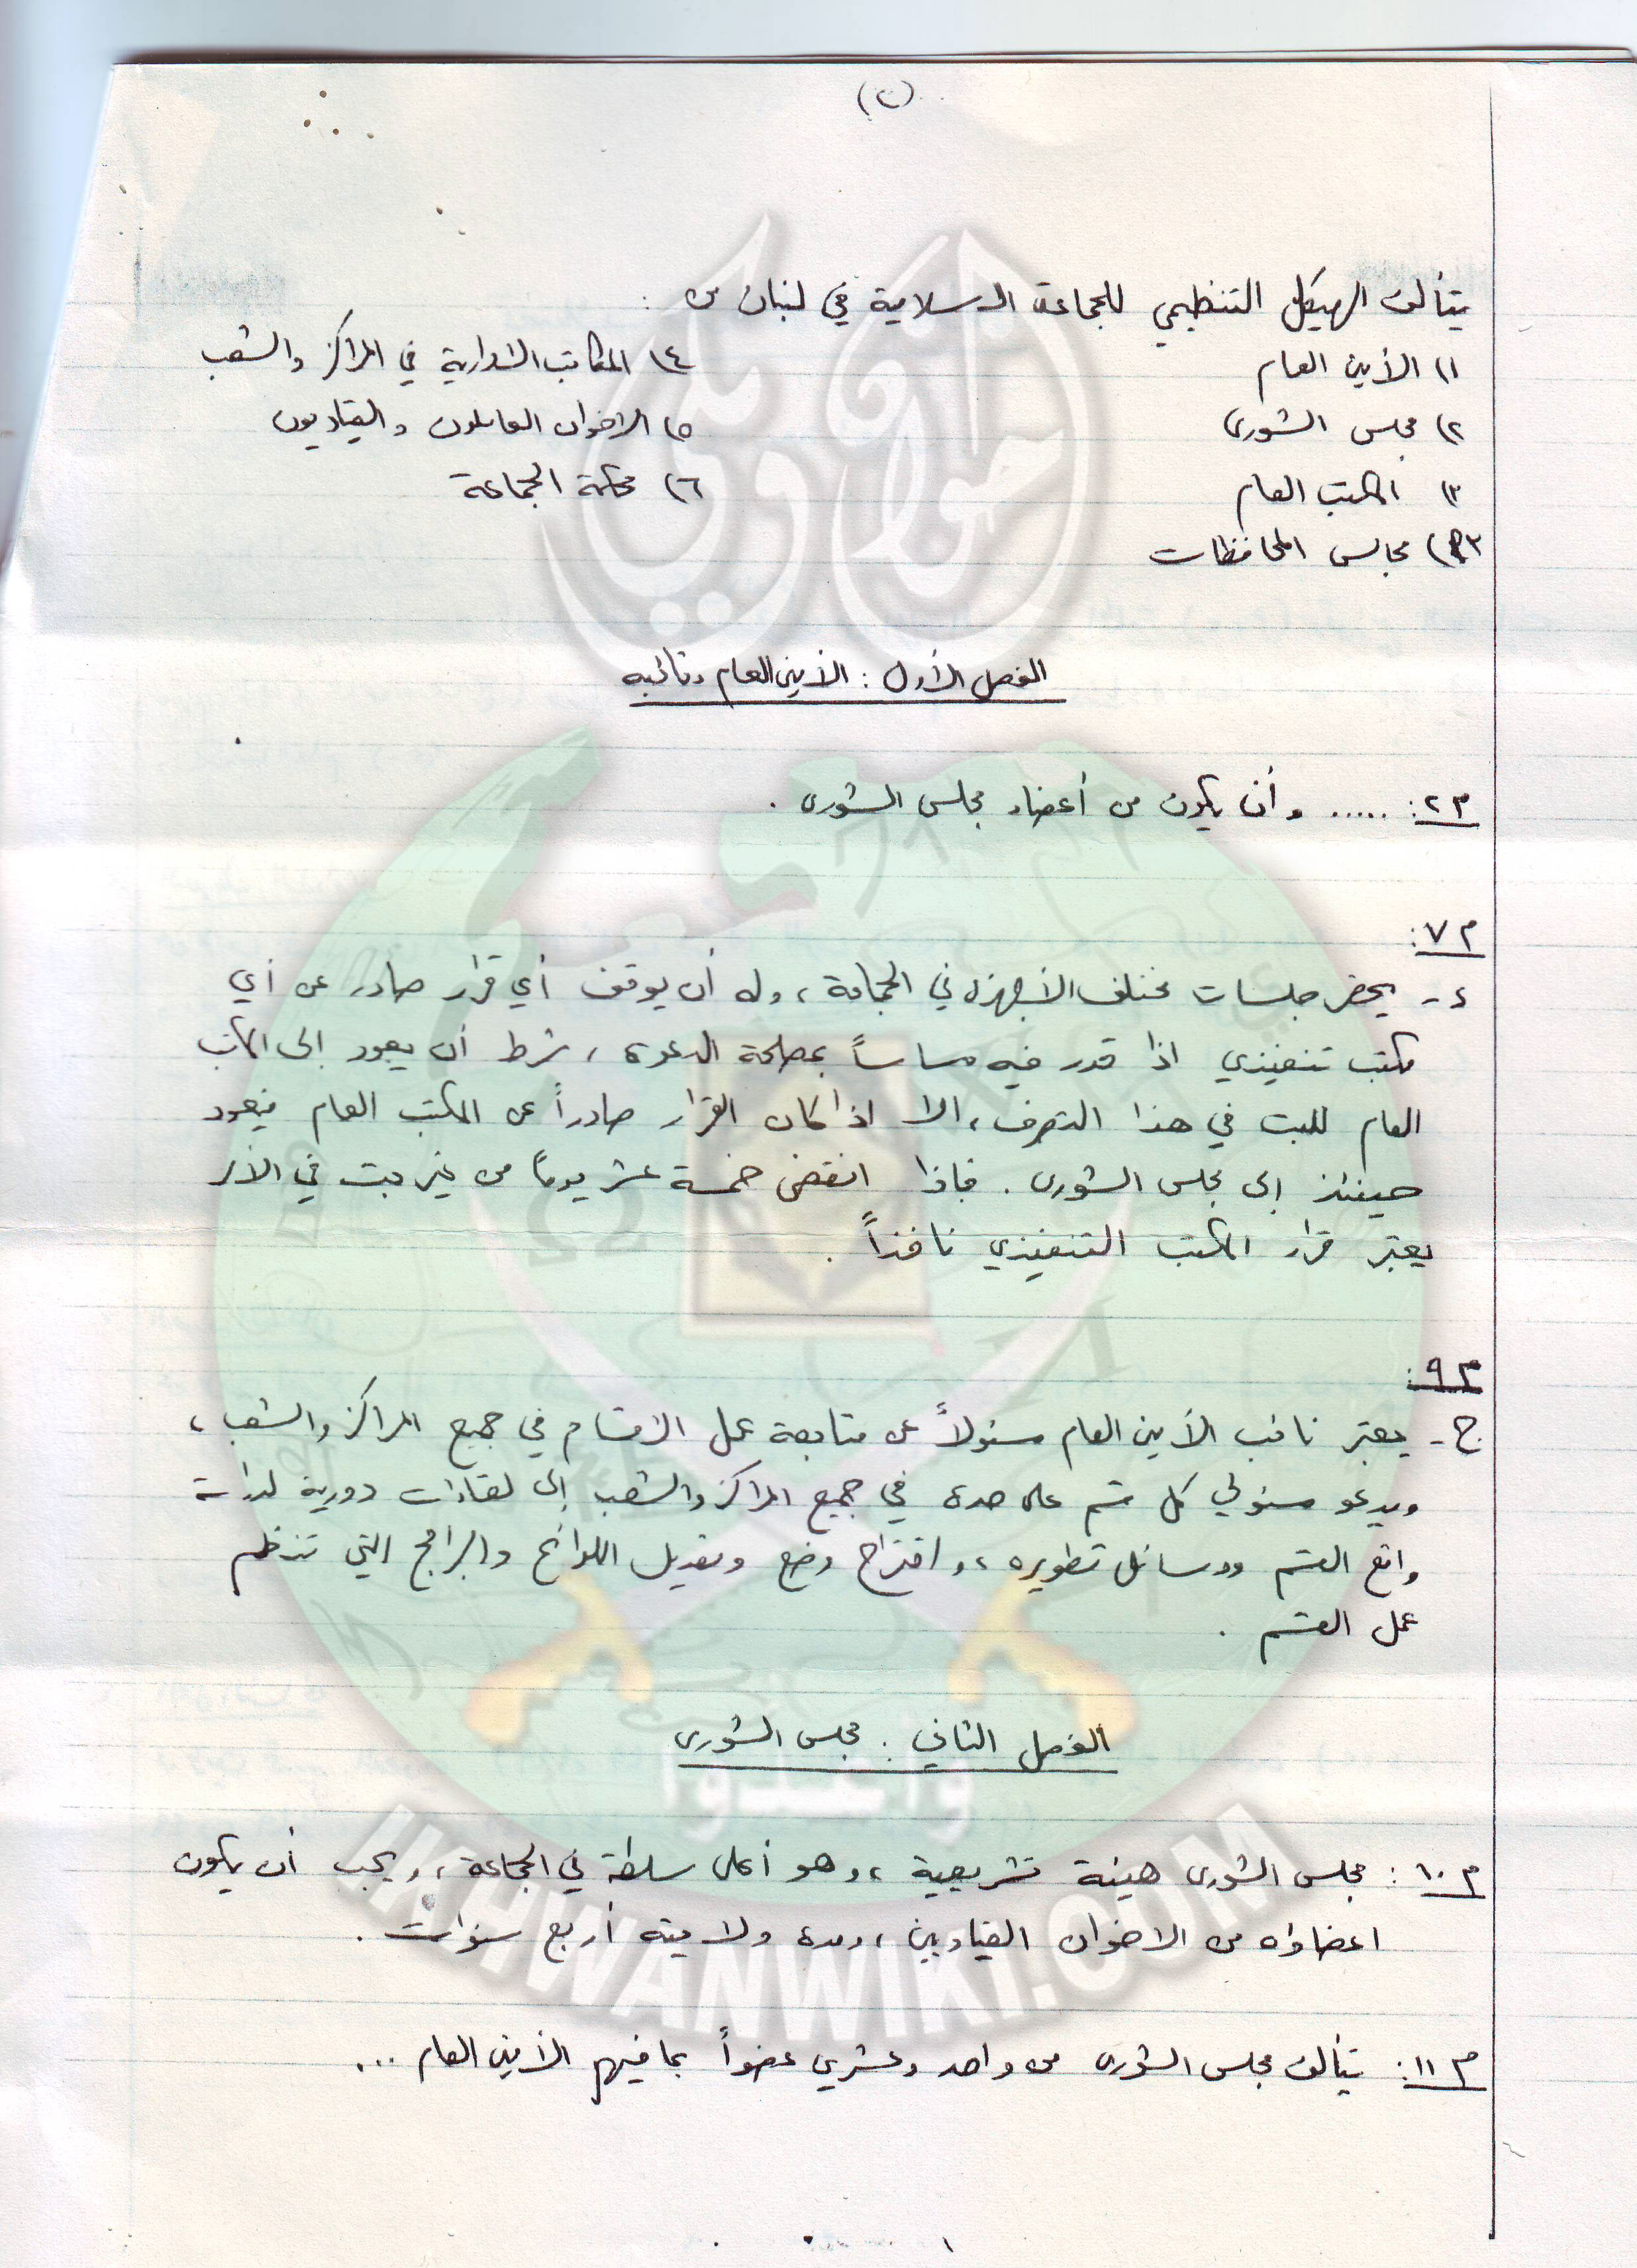 (٢)
يتألف الهيكل التنظيمي للجماعة الاسلامية في لبنان من :
١) الأمين العام
٤) المكاتب الادارية في المراكز والشعب
٢) مجلس الشورى
٥) الاخوان العاملون والقياديون
٣) المكتب العام
٦) محكمة الجماعة
مجالس المحافظات
الفصل الأول : الأمين العام ونائبه
م٢: ..... وأن يكون من أعضاء مجلس الشورى .
م٧:
د - يحضر جلسات مختلف الأجهزة في الجماعة ، وله أن يوقف أي قرار صادر عن أي
مكتب تنفيذي اذا قدر فيه مساساً بمصلحة الدعوة ، شرط أن يعود إلى المكتب
العام للبت في هذا التصرف ، الا اذا كان القرار صادراً عن المكتب العام فيعود
حينئذ إلى مجلس الشورى . فاذا انقضى خمسة عشر يوماً من غير بت في الأمر
يعتبر قرار المكتب التنفيذي نافذاً .
م٩:
ج - يعتبر نائب الأمين العام مسئولاً عن متابعة عمل الاقسام في جميع المراكز والشعب ،
ويدعو مسئولي كل قسم على حدة في جميع المراكز والشعب إلى لقاءات دورية لدراسة
واقع القسم ووسائل تطويره ، واقتراح وضع وتعديل اللوائح والبرامج التي تنظم
عمل القسم .
الفصل الثاني : مجلس الشورى
م١٠ : مجلس الشورى هيئة تشريعية ، وهو أعلى سلطة في الجماعة ، ويجب أن يكون
اعضاؤه من الاخوان القياديين ، ومدة ولايته أربع سنوات .
م١١ : يتألف مجلس الشورى من واحد وعشرين عضواً بما فيهم الأمين العام ...
وأعدوا
IKHWANWIKI.COM